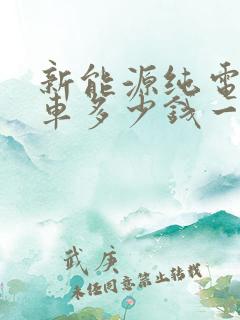 新能源纯电
车多少钱一
武庚
未经同意禁止转载